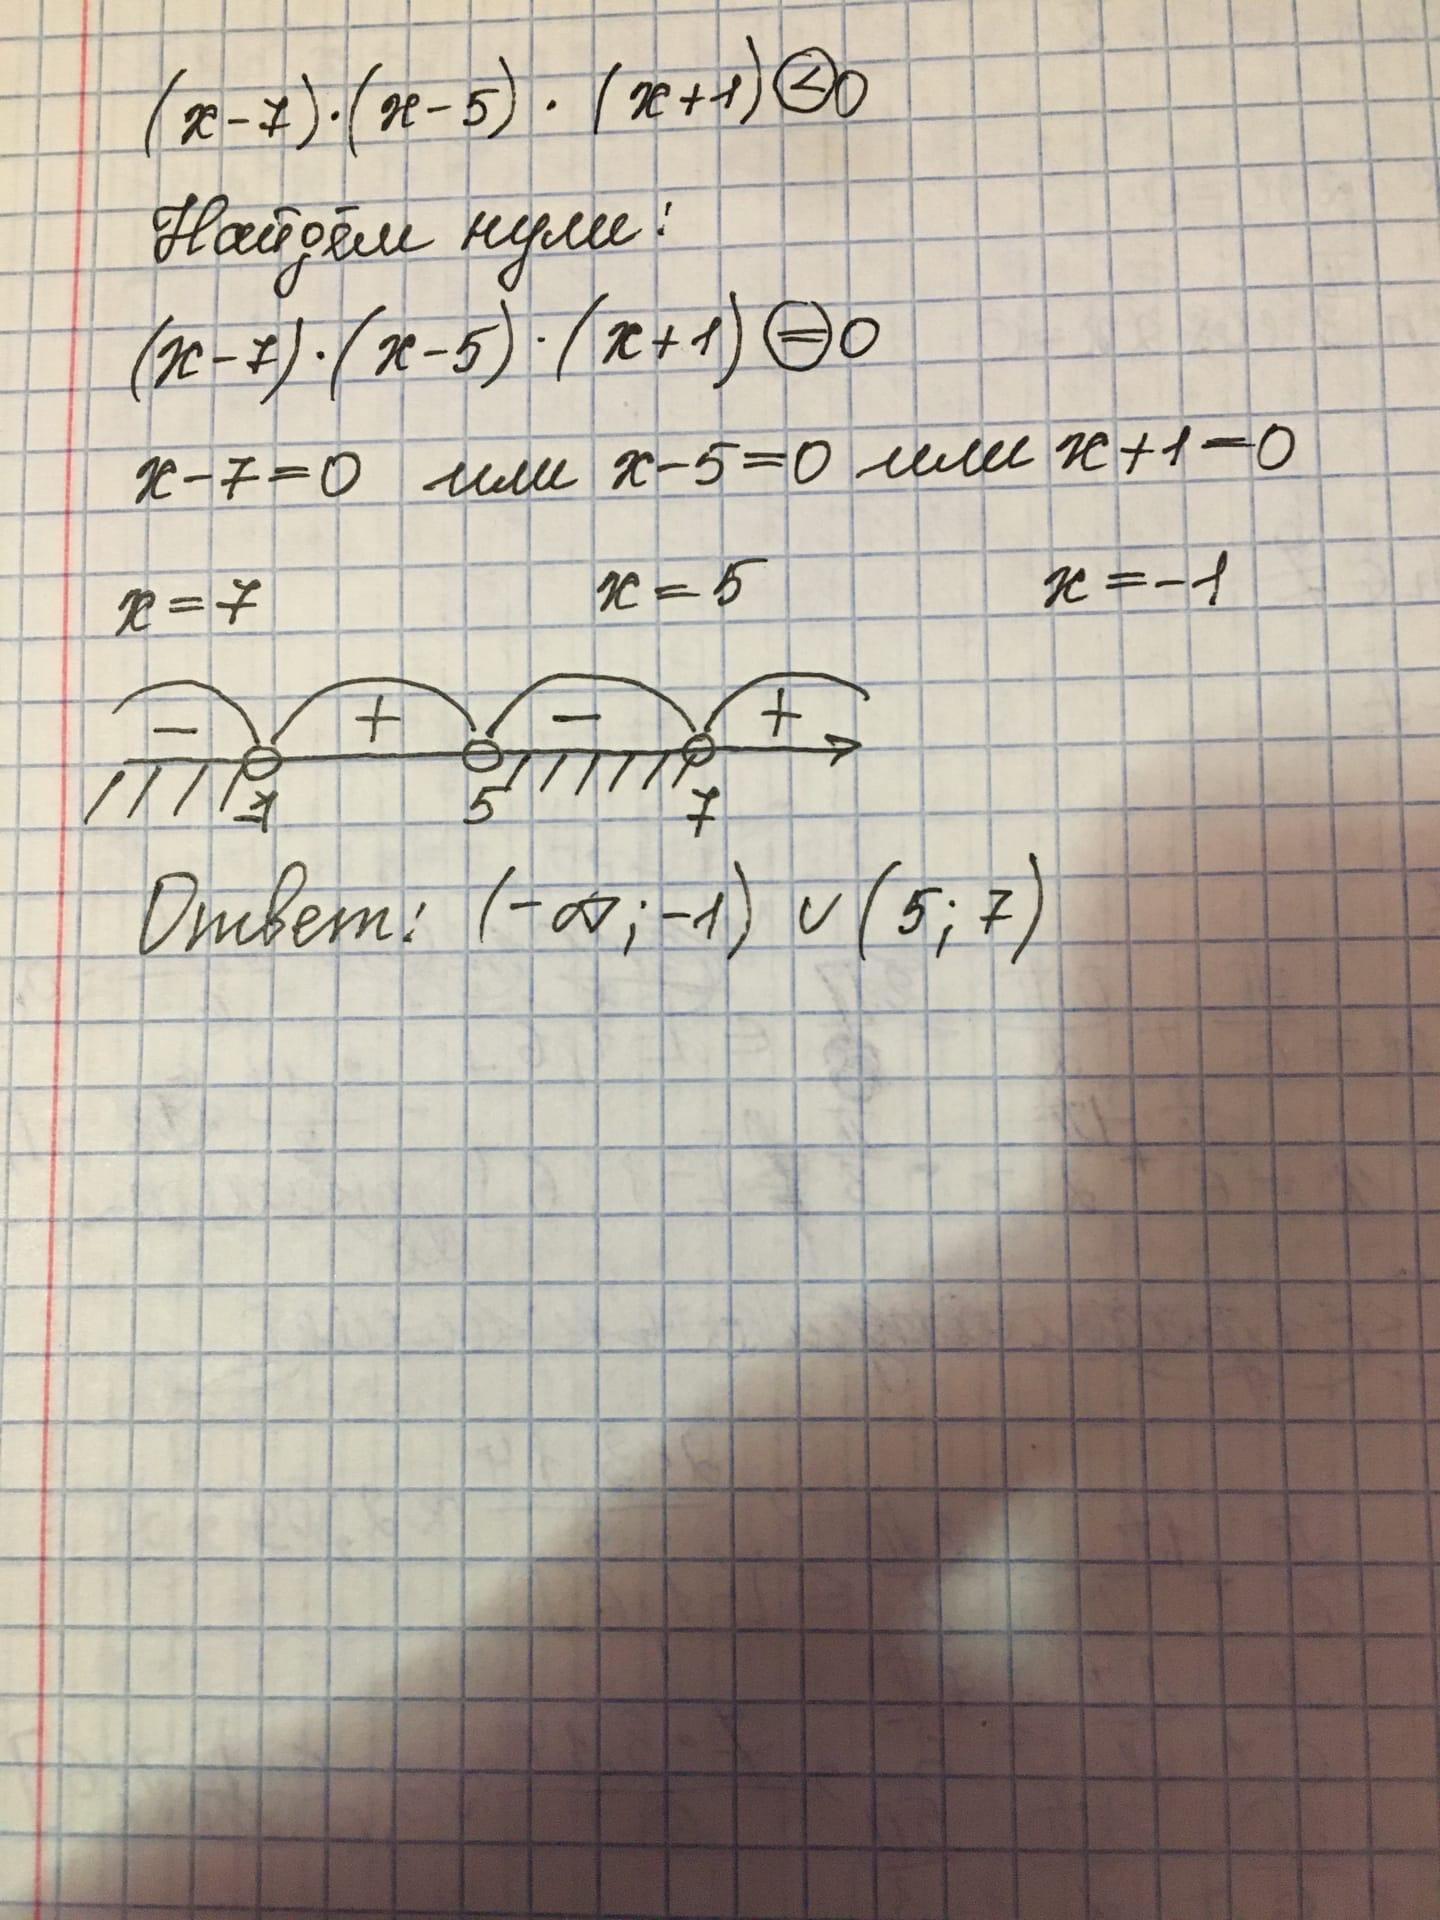 (x-7)·(x-5)·(x+1)<0
Найдём нули:
(x-7)·(x-5)·(x+1)=0
x-7=0 или x-5=0 или x+1=0
x=7 x=5 x=-1
- + - +
-1 5 7
Ответ: (-∞;-1) ∪ (5;7)